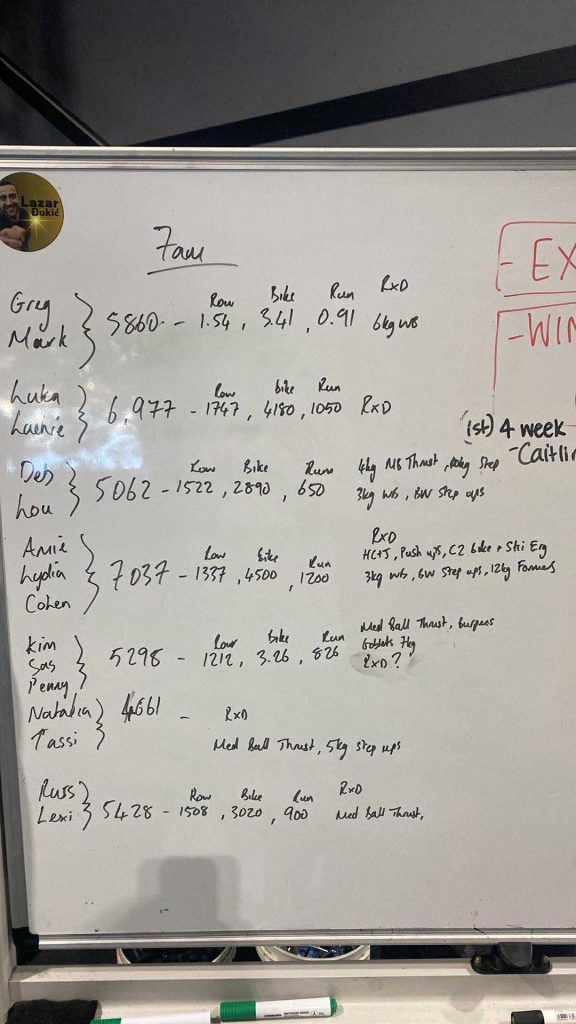 Lazar
Đukić
7am
- EX
- WIN
(1st) 4 week
- Caitlin
Row Bike Run RxD
Greg
Mark } 5860 - 1.54, 3.41, 0.91 6kg WB
Row bike Run
Luka
Lainie } 6,977 - 1747, 4180, 1050 RxD
Row Bike Run 4kg MB Thrust, step
Deb
Lou } 5062 - 1522, 2890, 650 3kg WB, BW Step ups
RxD
Row Bike Run HC+J, Push ups, C2 bike + Ski Erg
Amie
Lydia
Cohen } 7037 - 1337, 4500, 1200 3kg WB, BW Step ups, 12kg
Med Ball Thrust, burpees
Row bike Run Goblets 7kg
Kim
Sas
Penny } 5298 - 1212, 3.26, 826 RxD?
Natalia
Tassi } 4661 - RxD
Med Ball Thrust, 5kg step ups
Row Bike Run RxD
Russ
Lexi } 5428 - 1508, 3020, 900 Med Ball Thrust,